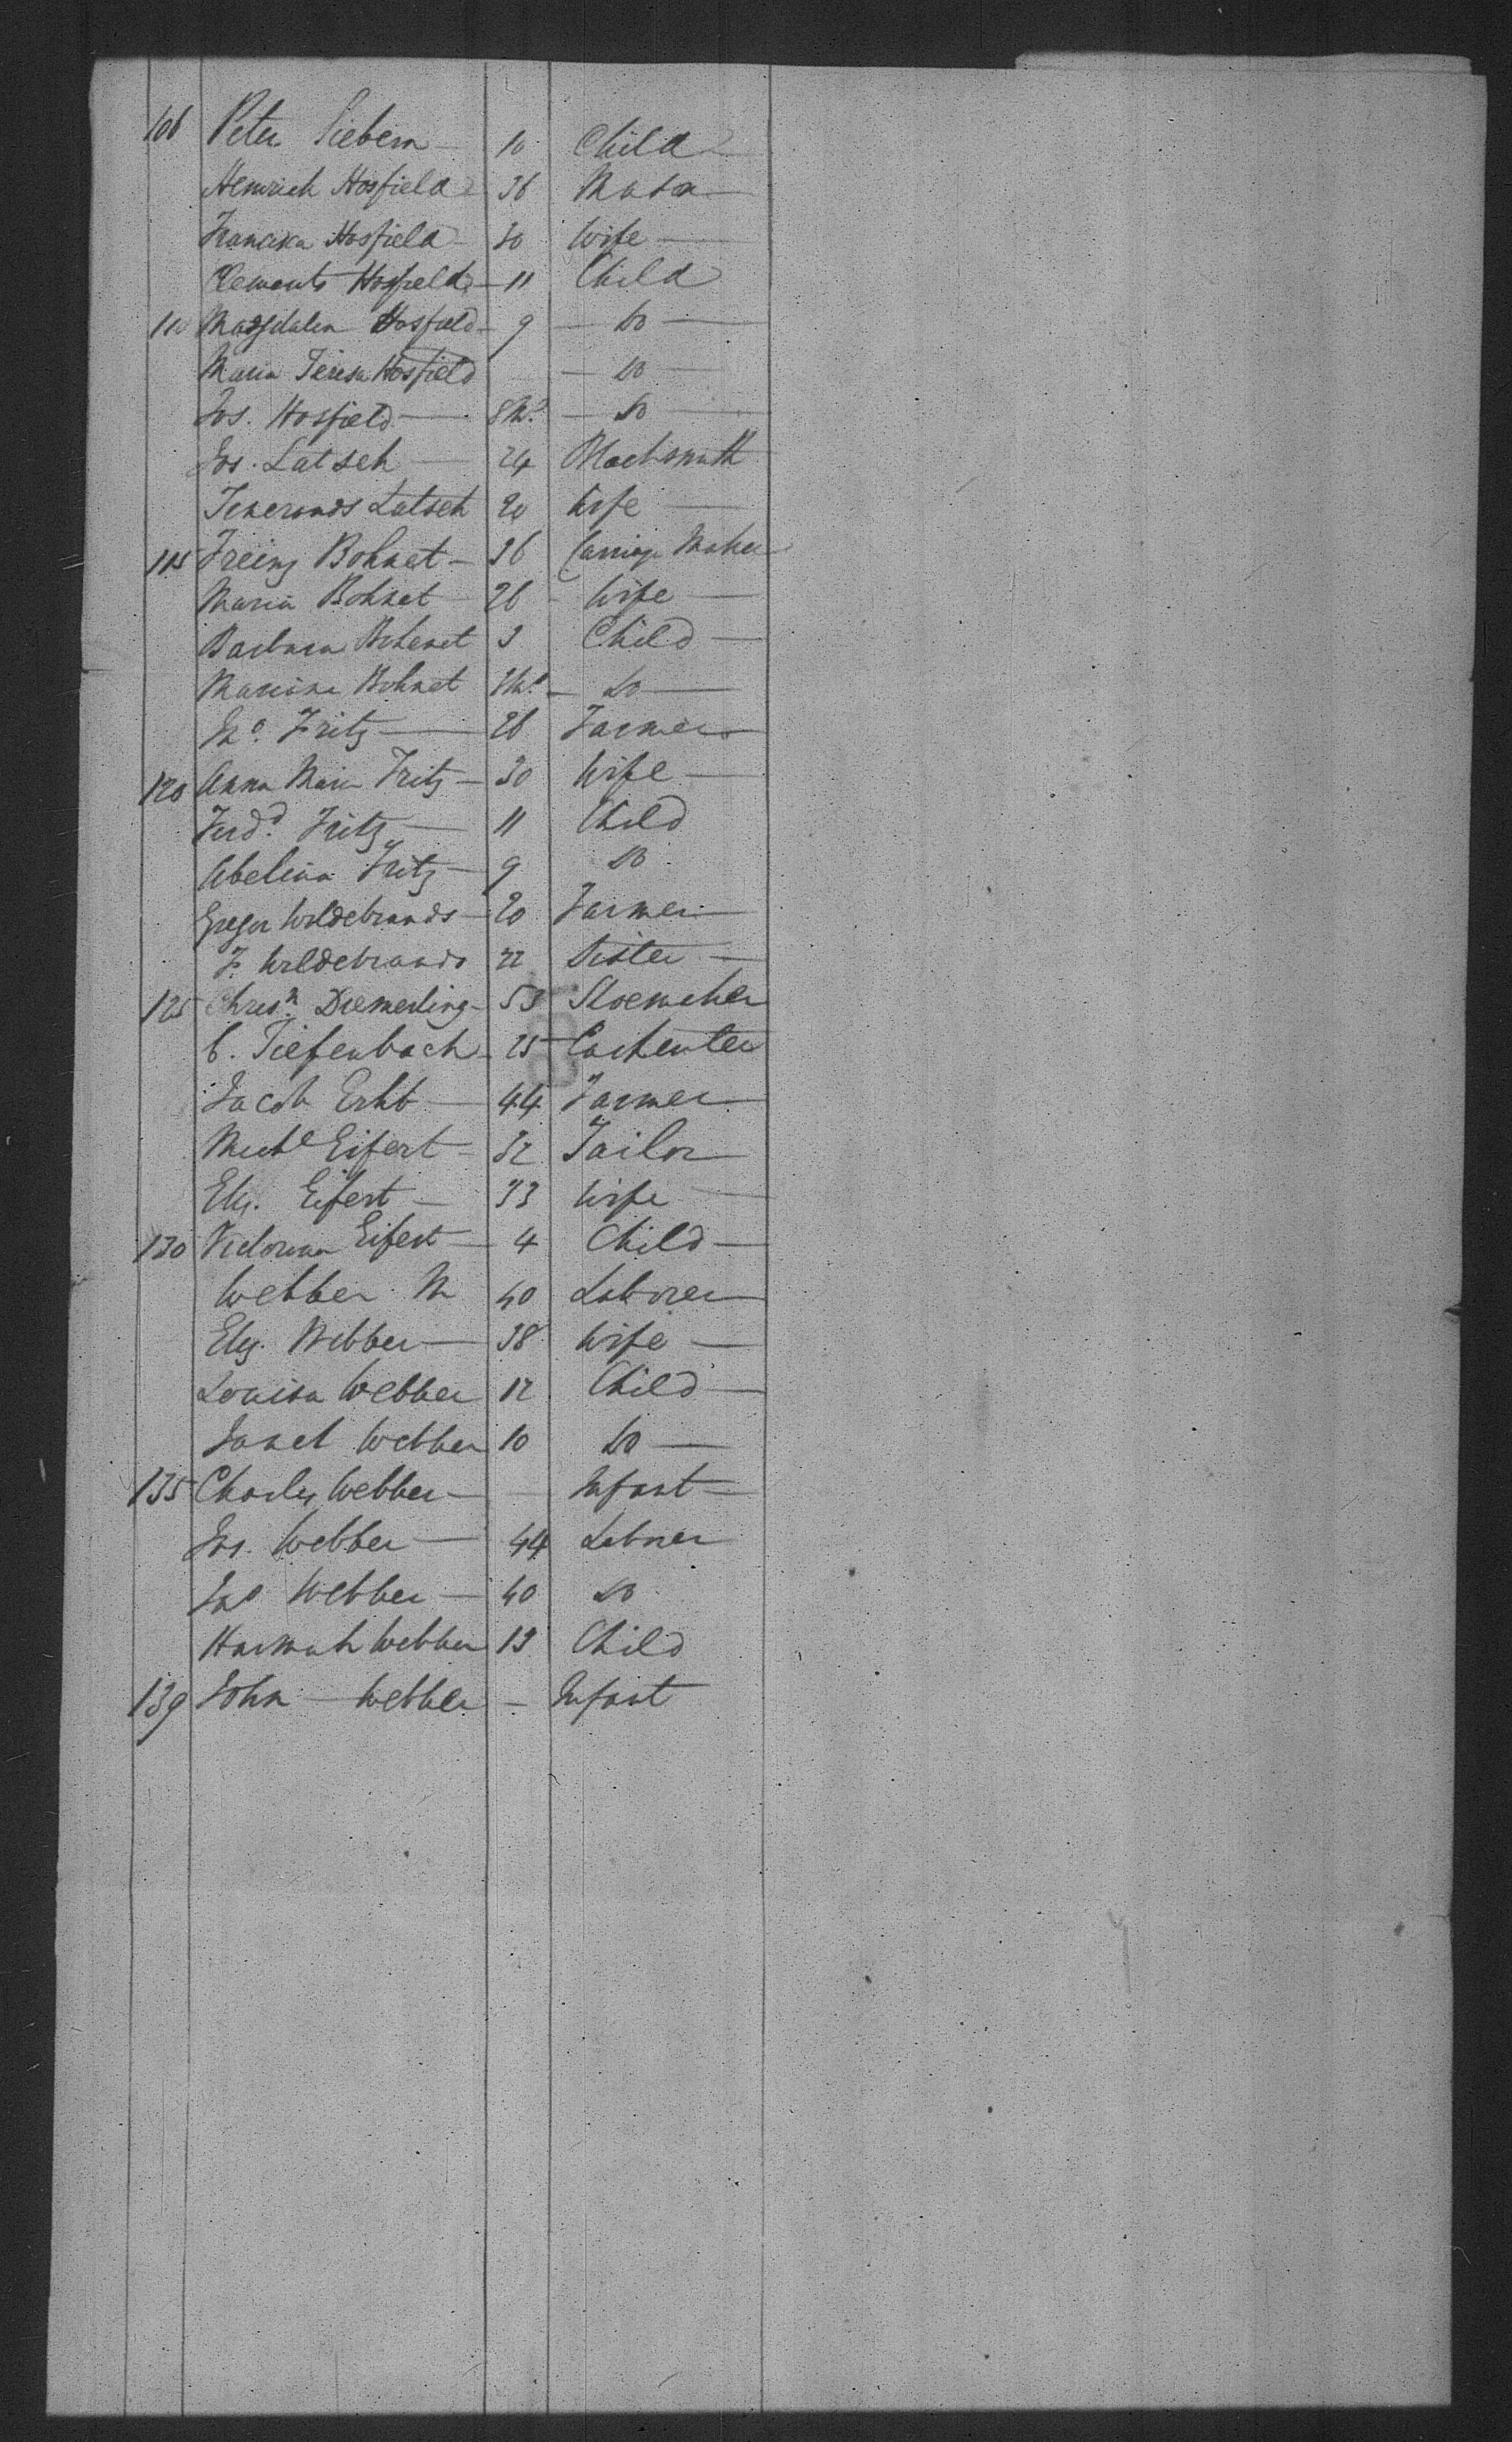 106 Peter Siebern — 10 Child
Heinrich Hosfield 36 Mason
Franciska Hosfield — 30 Wife —
Clements Hosfield — 11 Child
110 Magdalen Hosfield — 9 — Do —
Maria Teresa Hosfield — Do —
Jos. Hosfield — 8 Ms. — Do —
Jos. Latsch — 24 Blacksmith
Latsch 20 Wife —
115 Bohnet — 36 Carriage Maker
Maria Bohnet 26 — Wife —
Barbara Bohnet 3 Child —
Bohnet — Do —
Fritz — 26 Farmer
120 Anna Maria Fritz — 30 Wife —
Ferd.d Fritz — 11 Child
Abelina Fritz — 9 Do
Gregor Wildebrands — 20 Farmer
F. Wildebrands 22 Sister —
125 Chris.n Diemerling — 53 Shoemaker
C. Tiefenbach — 25 Carpenter
Jacob Erbb — 44 Farmer
Michl Eifert — 32 Tailor
Elz. Eifert — 33 Wife —
130 Eifert — 4 Child —
Webber M 40 Laborer
Elz. Webber — 38 Wife —
Louisa Webber 12 Child —
Janet Webber 10 Do —
135 Charles Webber — — Infant —
Jos. Webber — 44 Laborer
Jno Webber — 40 Do
Hannah Webber 13 Child
139 John — Webber — Infant